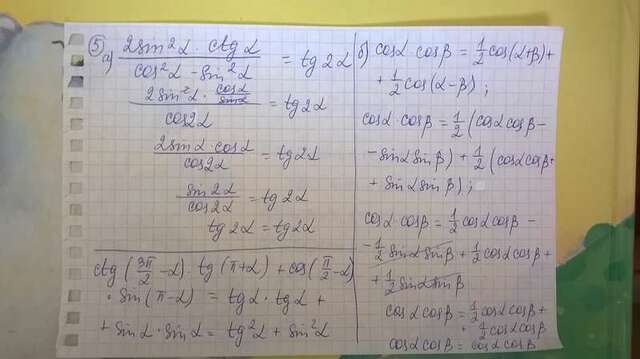 5) а) (2sin²α · ctg α)/(cos²α - sin²α) = tg 2α
(2sin²α · cosα/sinα)/cos2α = tg2α
(2sinα cosα)/cos2α = tg2α
sin2α/cos2α = tg2α
tg2α = tg2α
ctg(3π/2 - α) · tg(π+α) + cos(π/2 - α)
· sin(π-α) = tgα · tgα +
+ sinα · sinα = tg²α + sin²α
б) cosα · cosβ = 1/2 cos(α+β) +
+ 1/2 cos(α-β) ;
cosα · cosβ = 1/2 (cosα cosβ -
- sinα sinβ) + 1/2 (cosα cosβ +
+ sinα sinβ) ;
cosα · cosβ = 1/2 cosα cosβ -
- 1/2 sinα sinβ + 1/2 cosα cosβ +
+ 1/2 sinα sinβ
cosα cosβ = 1/2 cosα cosβ +
+ 1/2 cosα cosβ
cosα cosβ = cosα cosβ